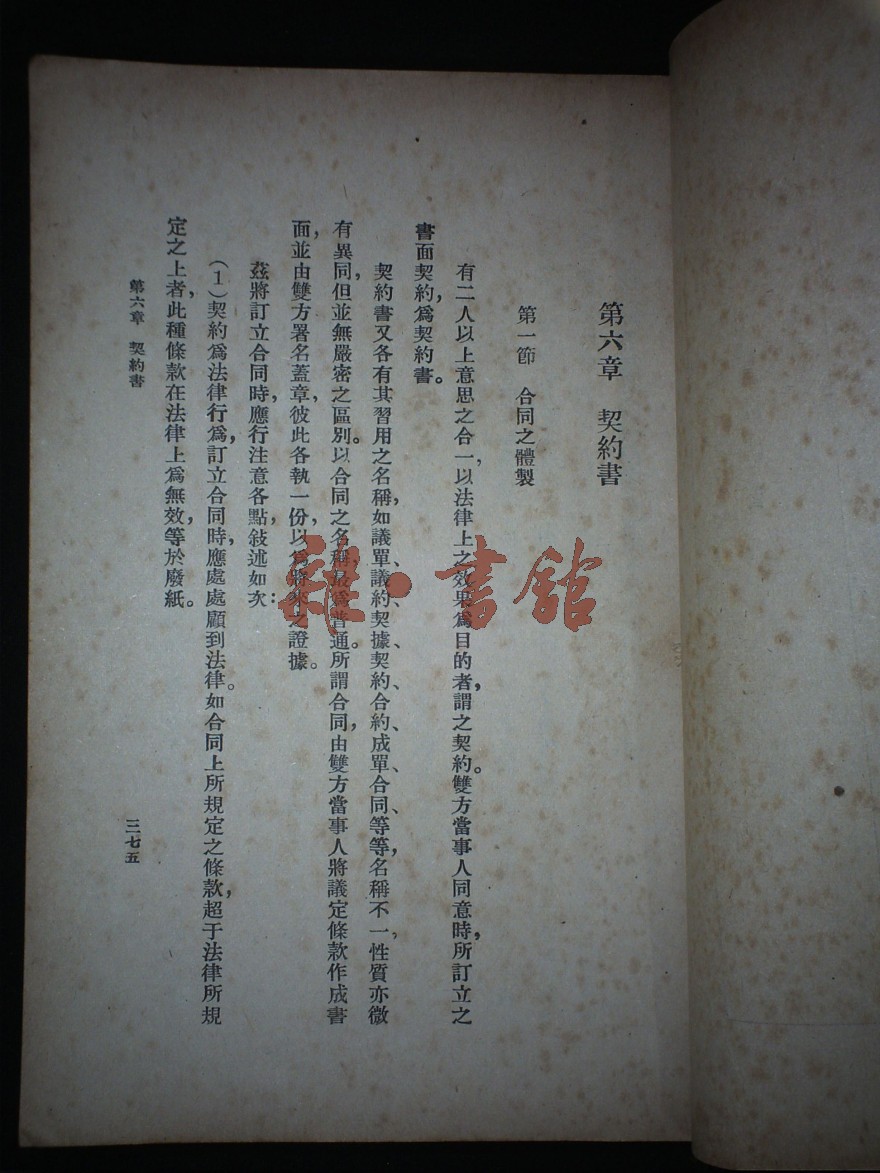 第六章　契約書
第一節　合同之體製
有二人以上意思之合一，以法律上之效果爲目的者，謂之契約。雙方當事人同意時，所訂立之
書面契約，爲契約書。
契約書又各有其習用之名稱，如議單、議約、契據、契約、合約、成單、合同、等等，名稱不一，性質亦微
有異同，但並無嚴密之區別。以合同之名稱，最爲普通。所謂合同，由雙方當事人將議定條款作成書
面，並由雙方署名蓋章，彼此各執一份，以爲將來之證據。
茲將訂立合同時，應行注意各點，敍述如次：
（1）契約爲法律行爲，訂立合同時，應處處顧到法律。如合同上所規定之條款，超于法律所規
定之上者，此種條款在法律上爲無效，等於廢紙。
第六章　契約書
三七五
雜·書館